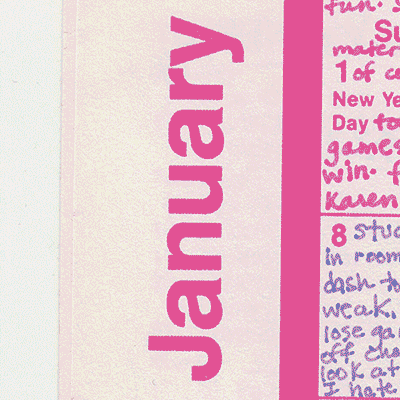 January
fun.
Su
mater
1 of c
New Ye
Day to
games
win. f
Karen
8 stud
in room
dash to
weak.
lose ga
off cha
look at
I hate